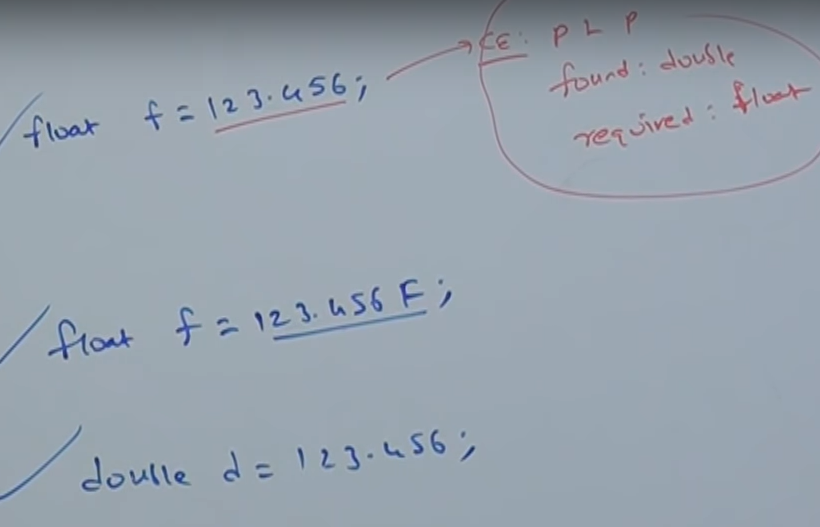 float f = 123.456;
CE: P L P
found: double
required: float
float f = 123.456 F;
double d = 123.456;